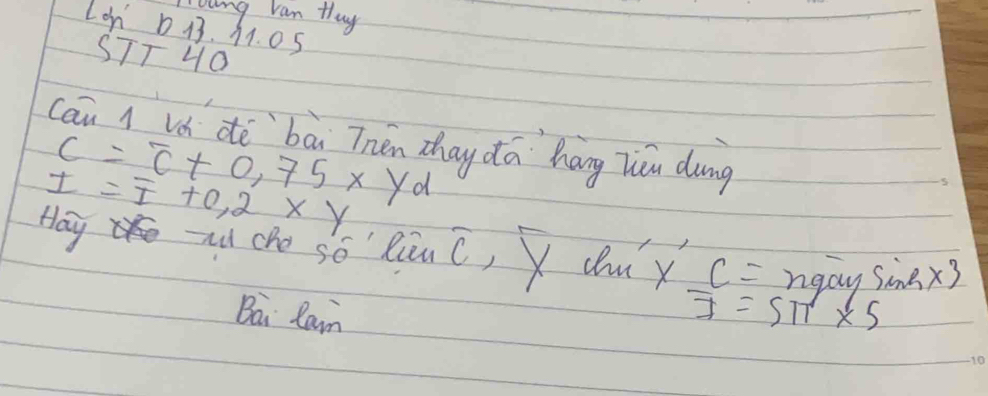 Hoàng Văn Huy
Lớp D13.11.05
STT 40
Câu 1 Với đề bài Trên thay đổi hàng Tiêu dùng
C = C̄ + 0,75 x Yd
I = Ī + 0,2 x Y
Hãy cho số liệu C̄, Ȳ chú Ý C̄ = ngày sinh x 3
Ī = STT x 5
Bài làm